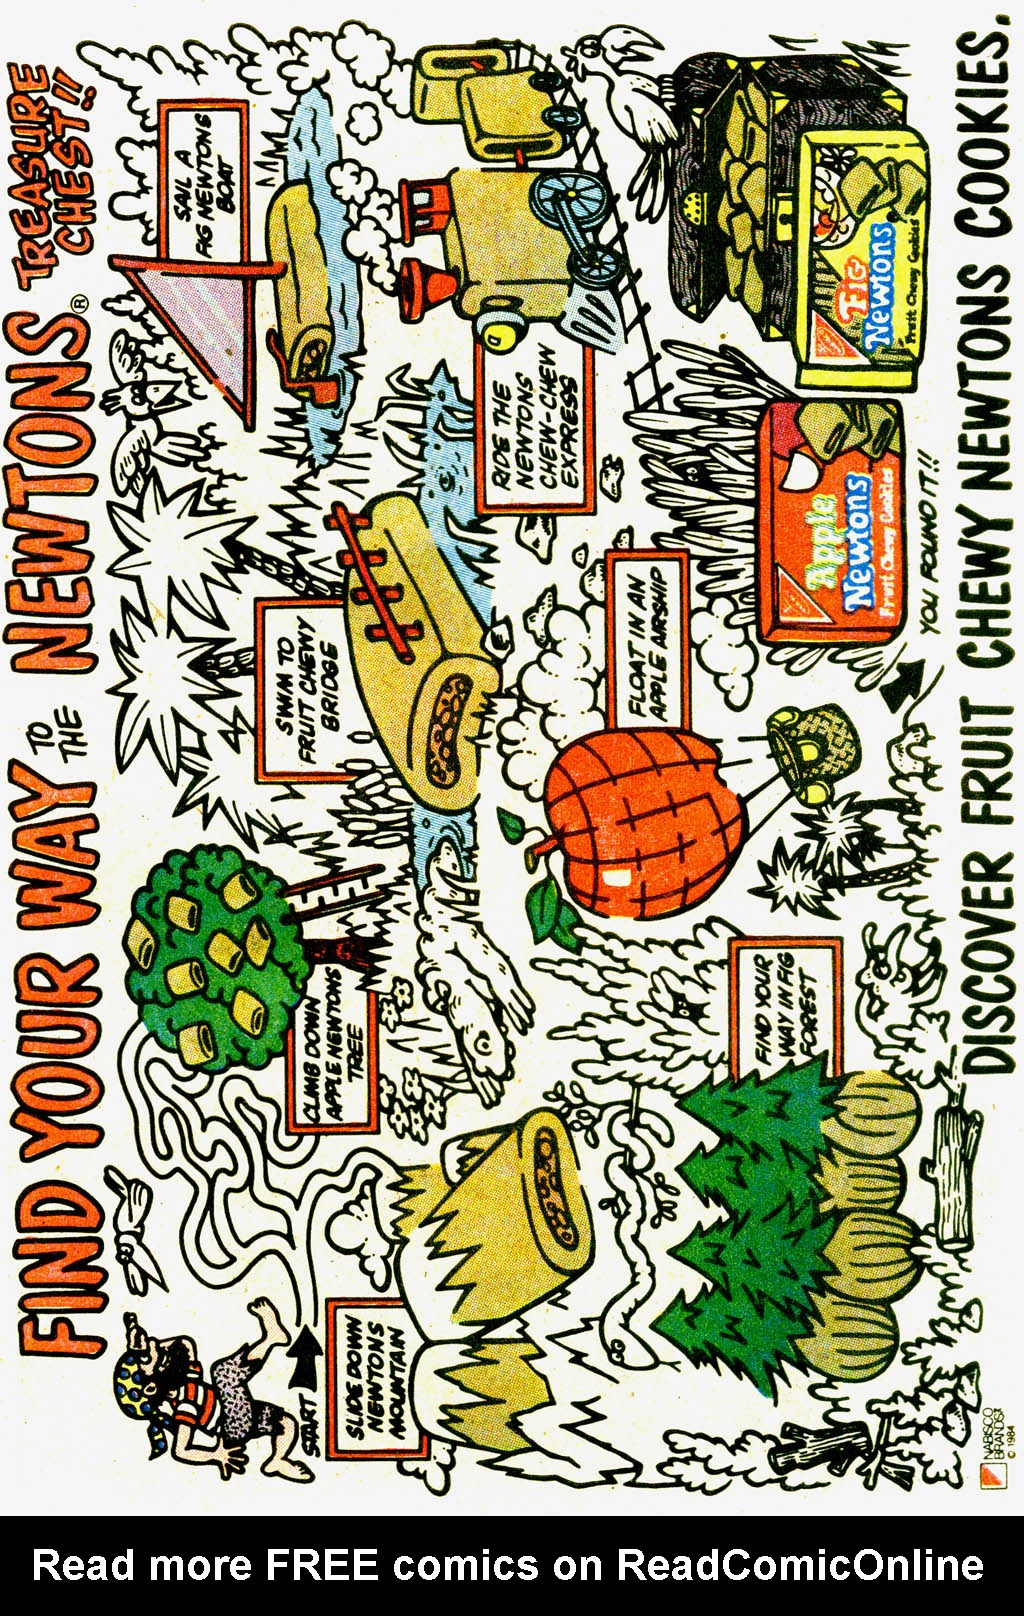 FIND YOUR WAY TO THE NEWTONS® TREASURE CHEST!!
START
SLIDE DOWN
NEWTONS
MOUNTAIN
CLIMB DOWN
APPLE NEWTONS
TREE
SWIM TO
FRUIT CHEWY
BRIDGE
SAIL A
FIG NEWTONS
BOAT
RIDE THE
NEWTONS
CHEW-CHEW
EXPRESS
FLOAT IN AN
APPLE AIRSHIP
FIND YOUR
WAY IN FIG
FOREST
Apple
Newtons
Fruit Chewy Cookies
Fig
Newtons
Fruit Chewy Cookies
YOU FOUND IT!!
DISCOVER FRUIT CHEWY NEWTONS COOKIES.
NABISCO
BRANDS
© 1984
Read more FREE comics on ReadComicOnline